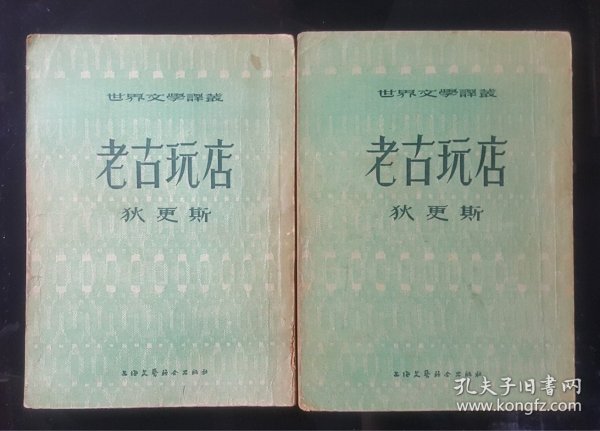 世界文學譯叢
老古玩店
狄更斯
上海文藝聯合出版社
世界文學譯叢
老古玩店
狄更斯
上海文藝聯合出版社
孔夫子旧书网
www.kongfz.com